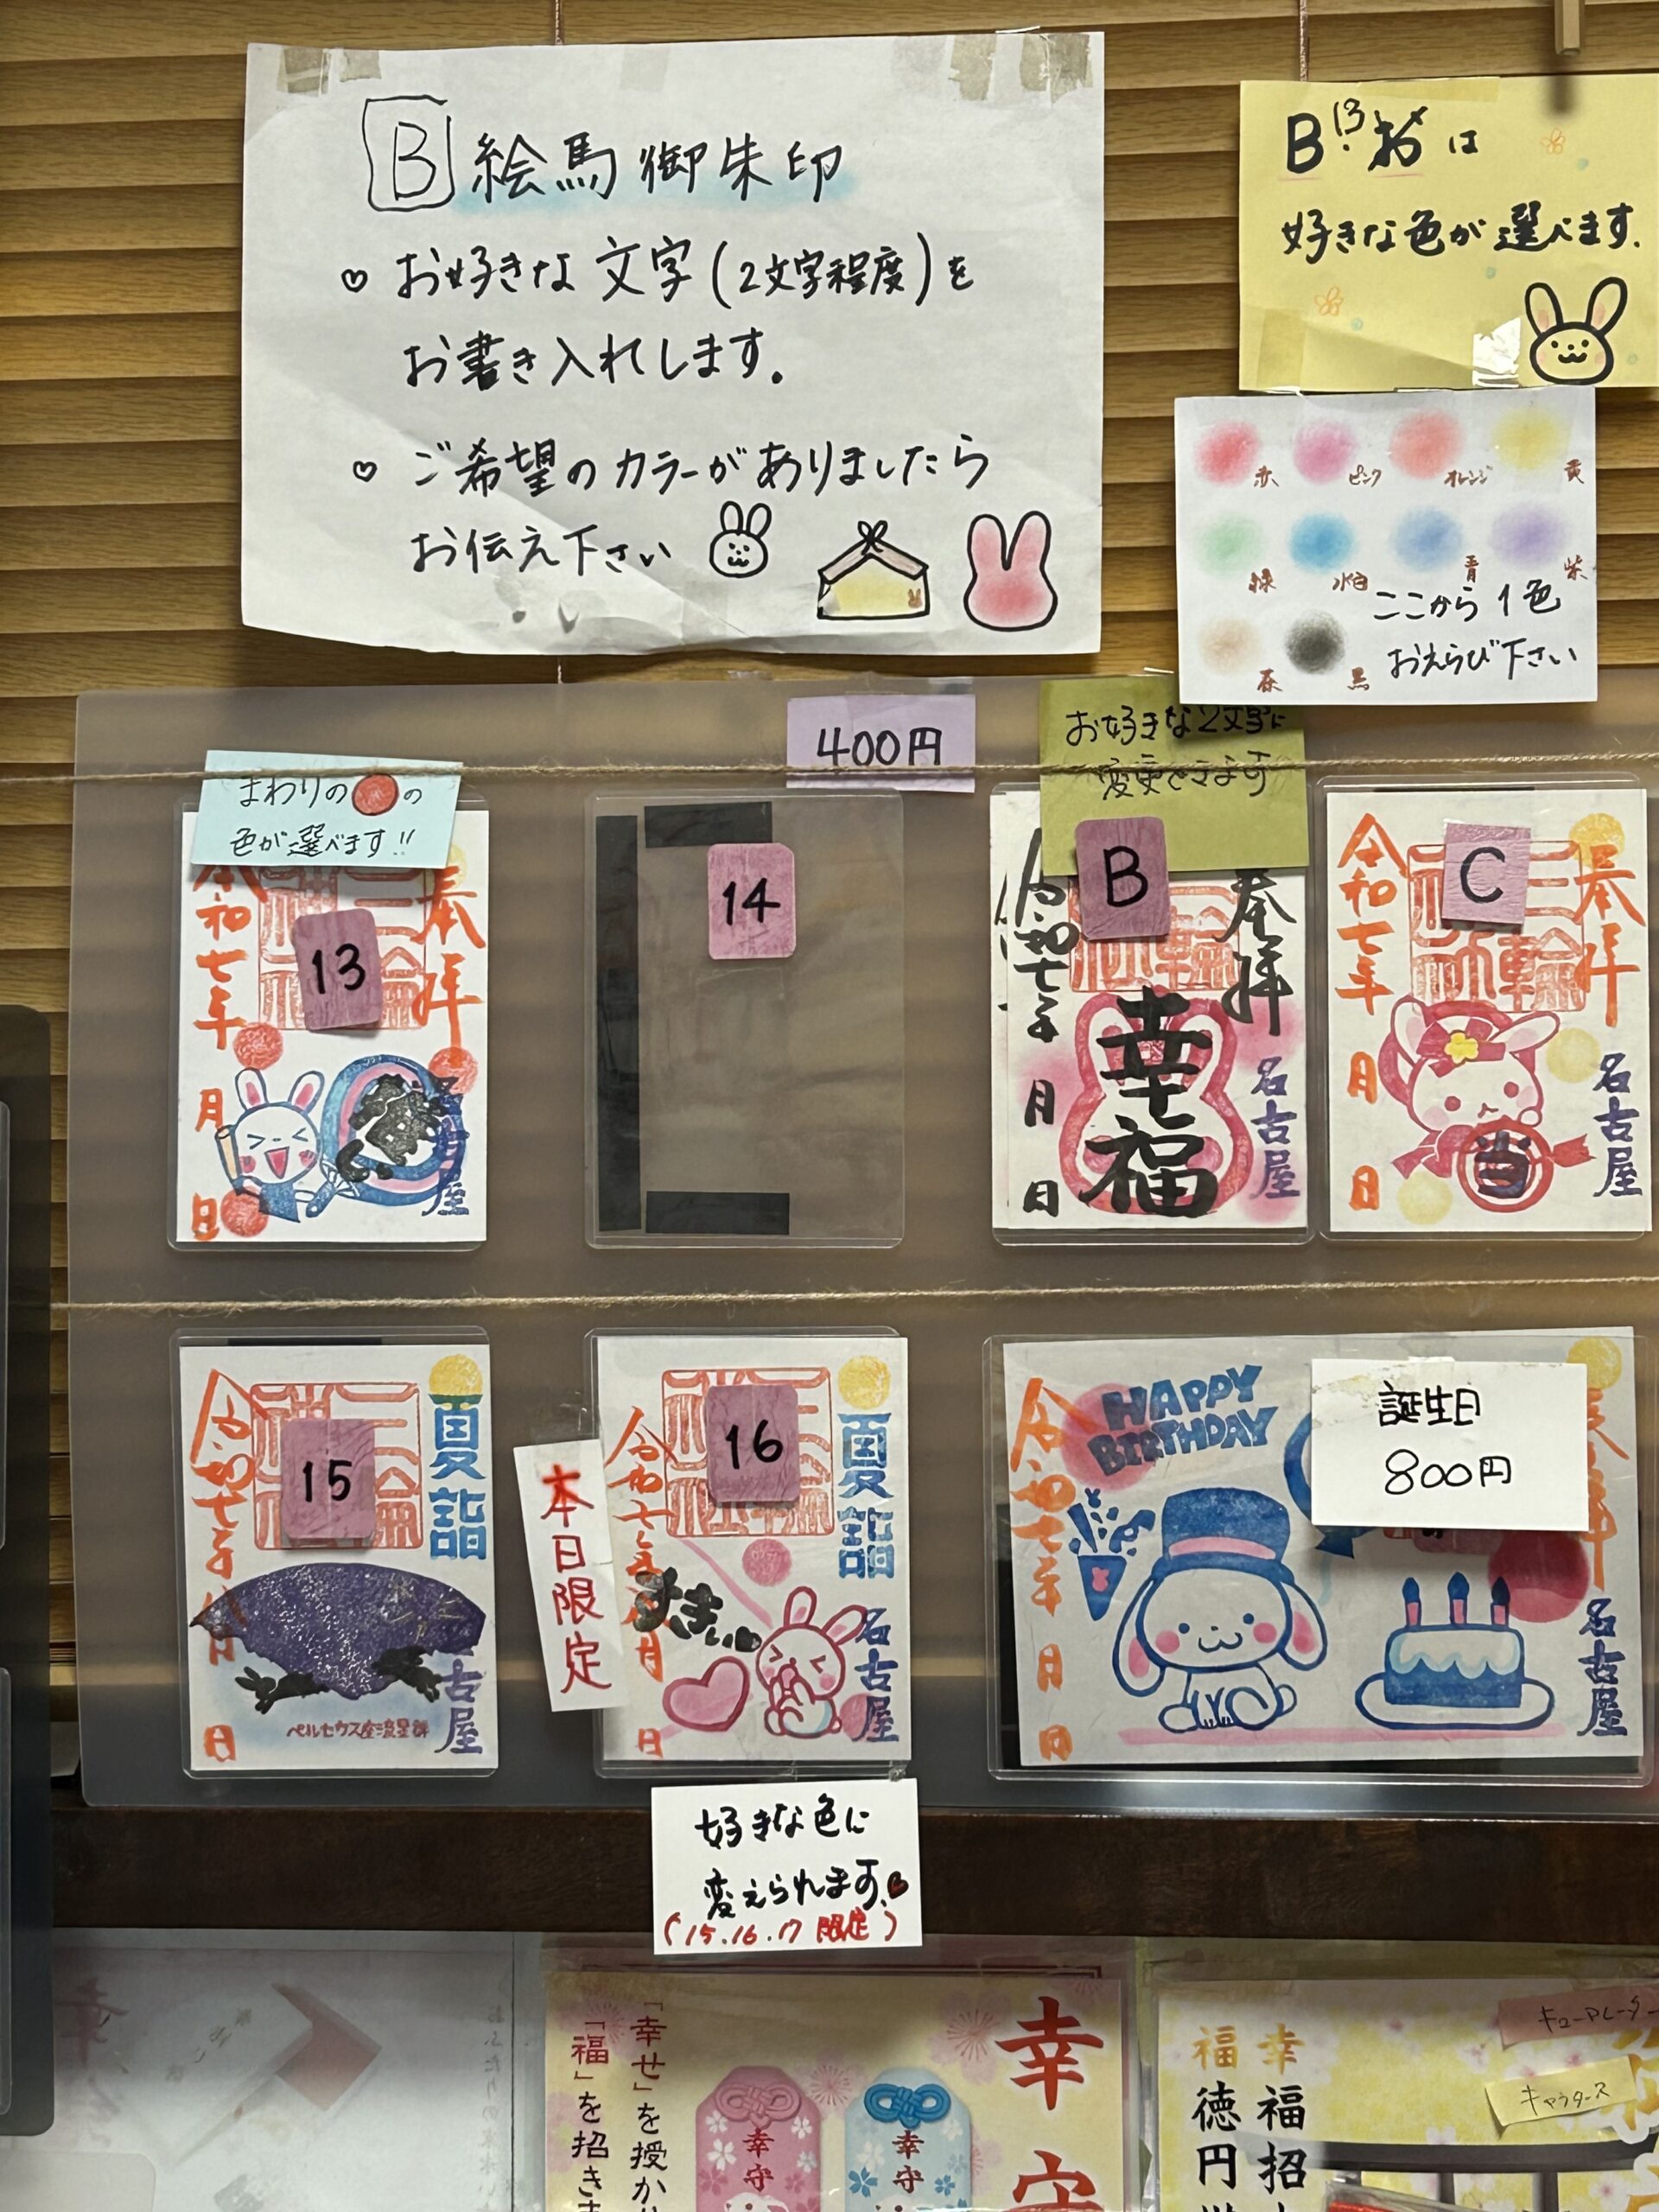 B 絵馬御朱印
♡ お好きな文字(2文字程度)を
お書き入れします。
♡ ご希望のカラーがありましたら
お伝え下さい
B 13 お は
好きな色が選べます.
赤 ピンク オレンジ 黄
緑 水色 青 紫
茶 黒
ここから1色
おえらび下さい
400円
お好きな2文字に
変更できます
まわりの の
色が選べます!!
13
奉拝
令和七年
月
日
名古屋
14
B
奉拝
令和七年
月
日
幸福
名古屋
C
奉拝
令和七年
月
日
当
名古屋
15
夏詣
令和七年八月
日
名古屋
ペルセウス座流星群
16
夏詣
令和七年八月
日
名古屋
本日限定
HAPPY
BIRTHDAY
誕生日
800円
令和七年
月
日
名古屋
好きな色に
変えられます。
(15.16.17 限定)
幸守
「幸せ」を授か
「福」を招き
幸守
幸守
幸福招
福徳円
キューアレーター
キャラクターズ